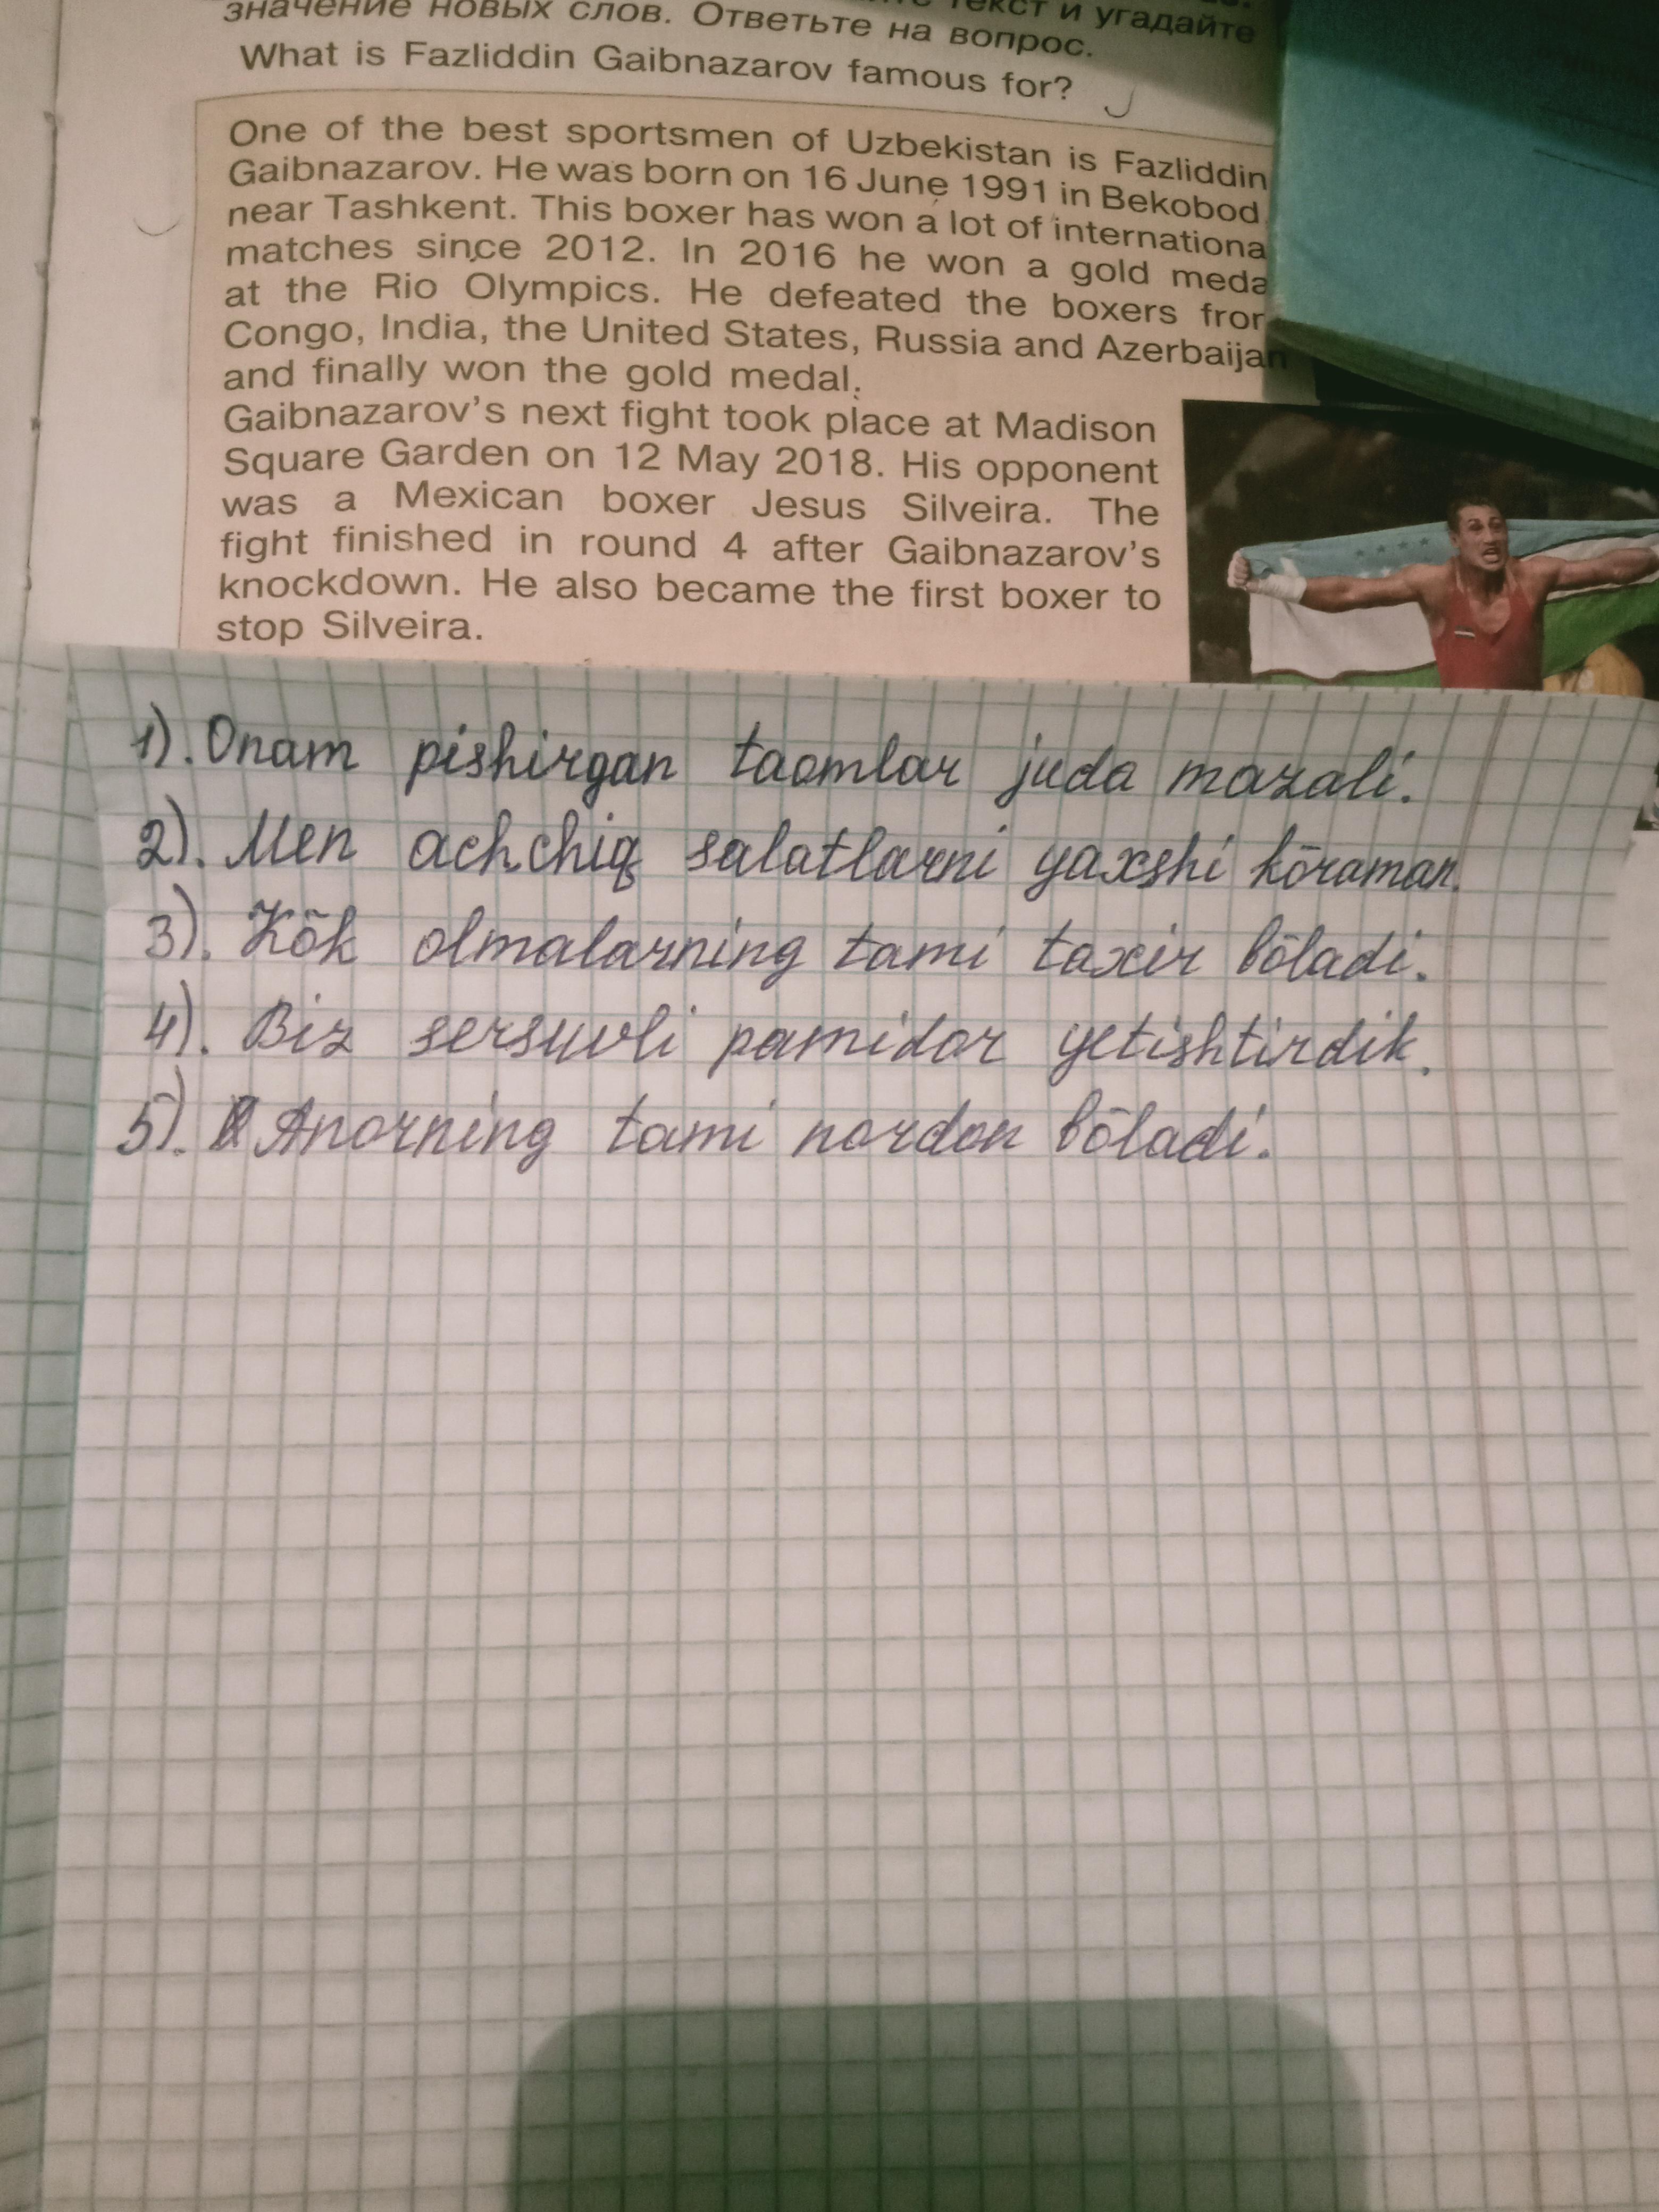 текст и угадайте
значение новых слов. Ответьте на вопрос.
What is Fazliddin Gaibnazarov famous for?
One of the best sportsmen of Uzbekistan is Fazliddin
Gaibnazarov. He was born on 16 June 1991 in Bekobod
near Tashkent. This boxer has won a lot of internationa
matches since 2012. In 2016 he won a gold meda
at the Rio Olympics. He defeated the boxers fror
Congo, India, the United States, Russia and Azerbaijan
and finally won the gold medal.
Gaibnazarov's next fight took place at Madison
Square Garden on 12 May 2018. His opponent
was a Mexican boxer Jesus Silveira. The
fight finished in round 4 after Gaibnazarov's
knockdown. He also became the first boxer to
stop Silveira.
1). Onam pishirgan taomlar juda mazali.
2). Men achchiq salatlarni yaxshi kõraman.
3). Kõk olmalarning tami taxir bõladi.
4). Biz sersuvli pamidor yetishtirdik.
5). Anorning tami nordon bõladi.